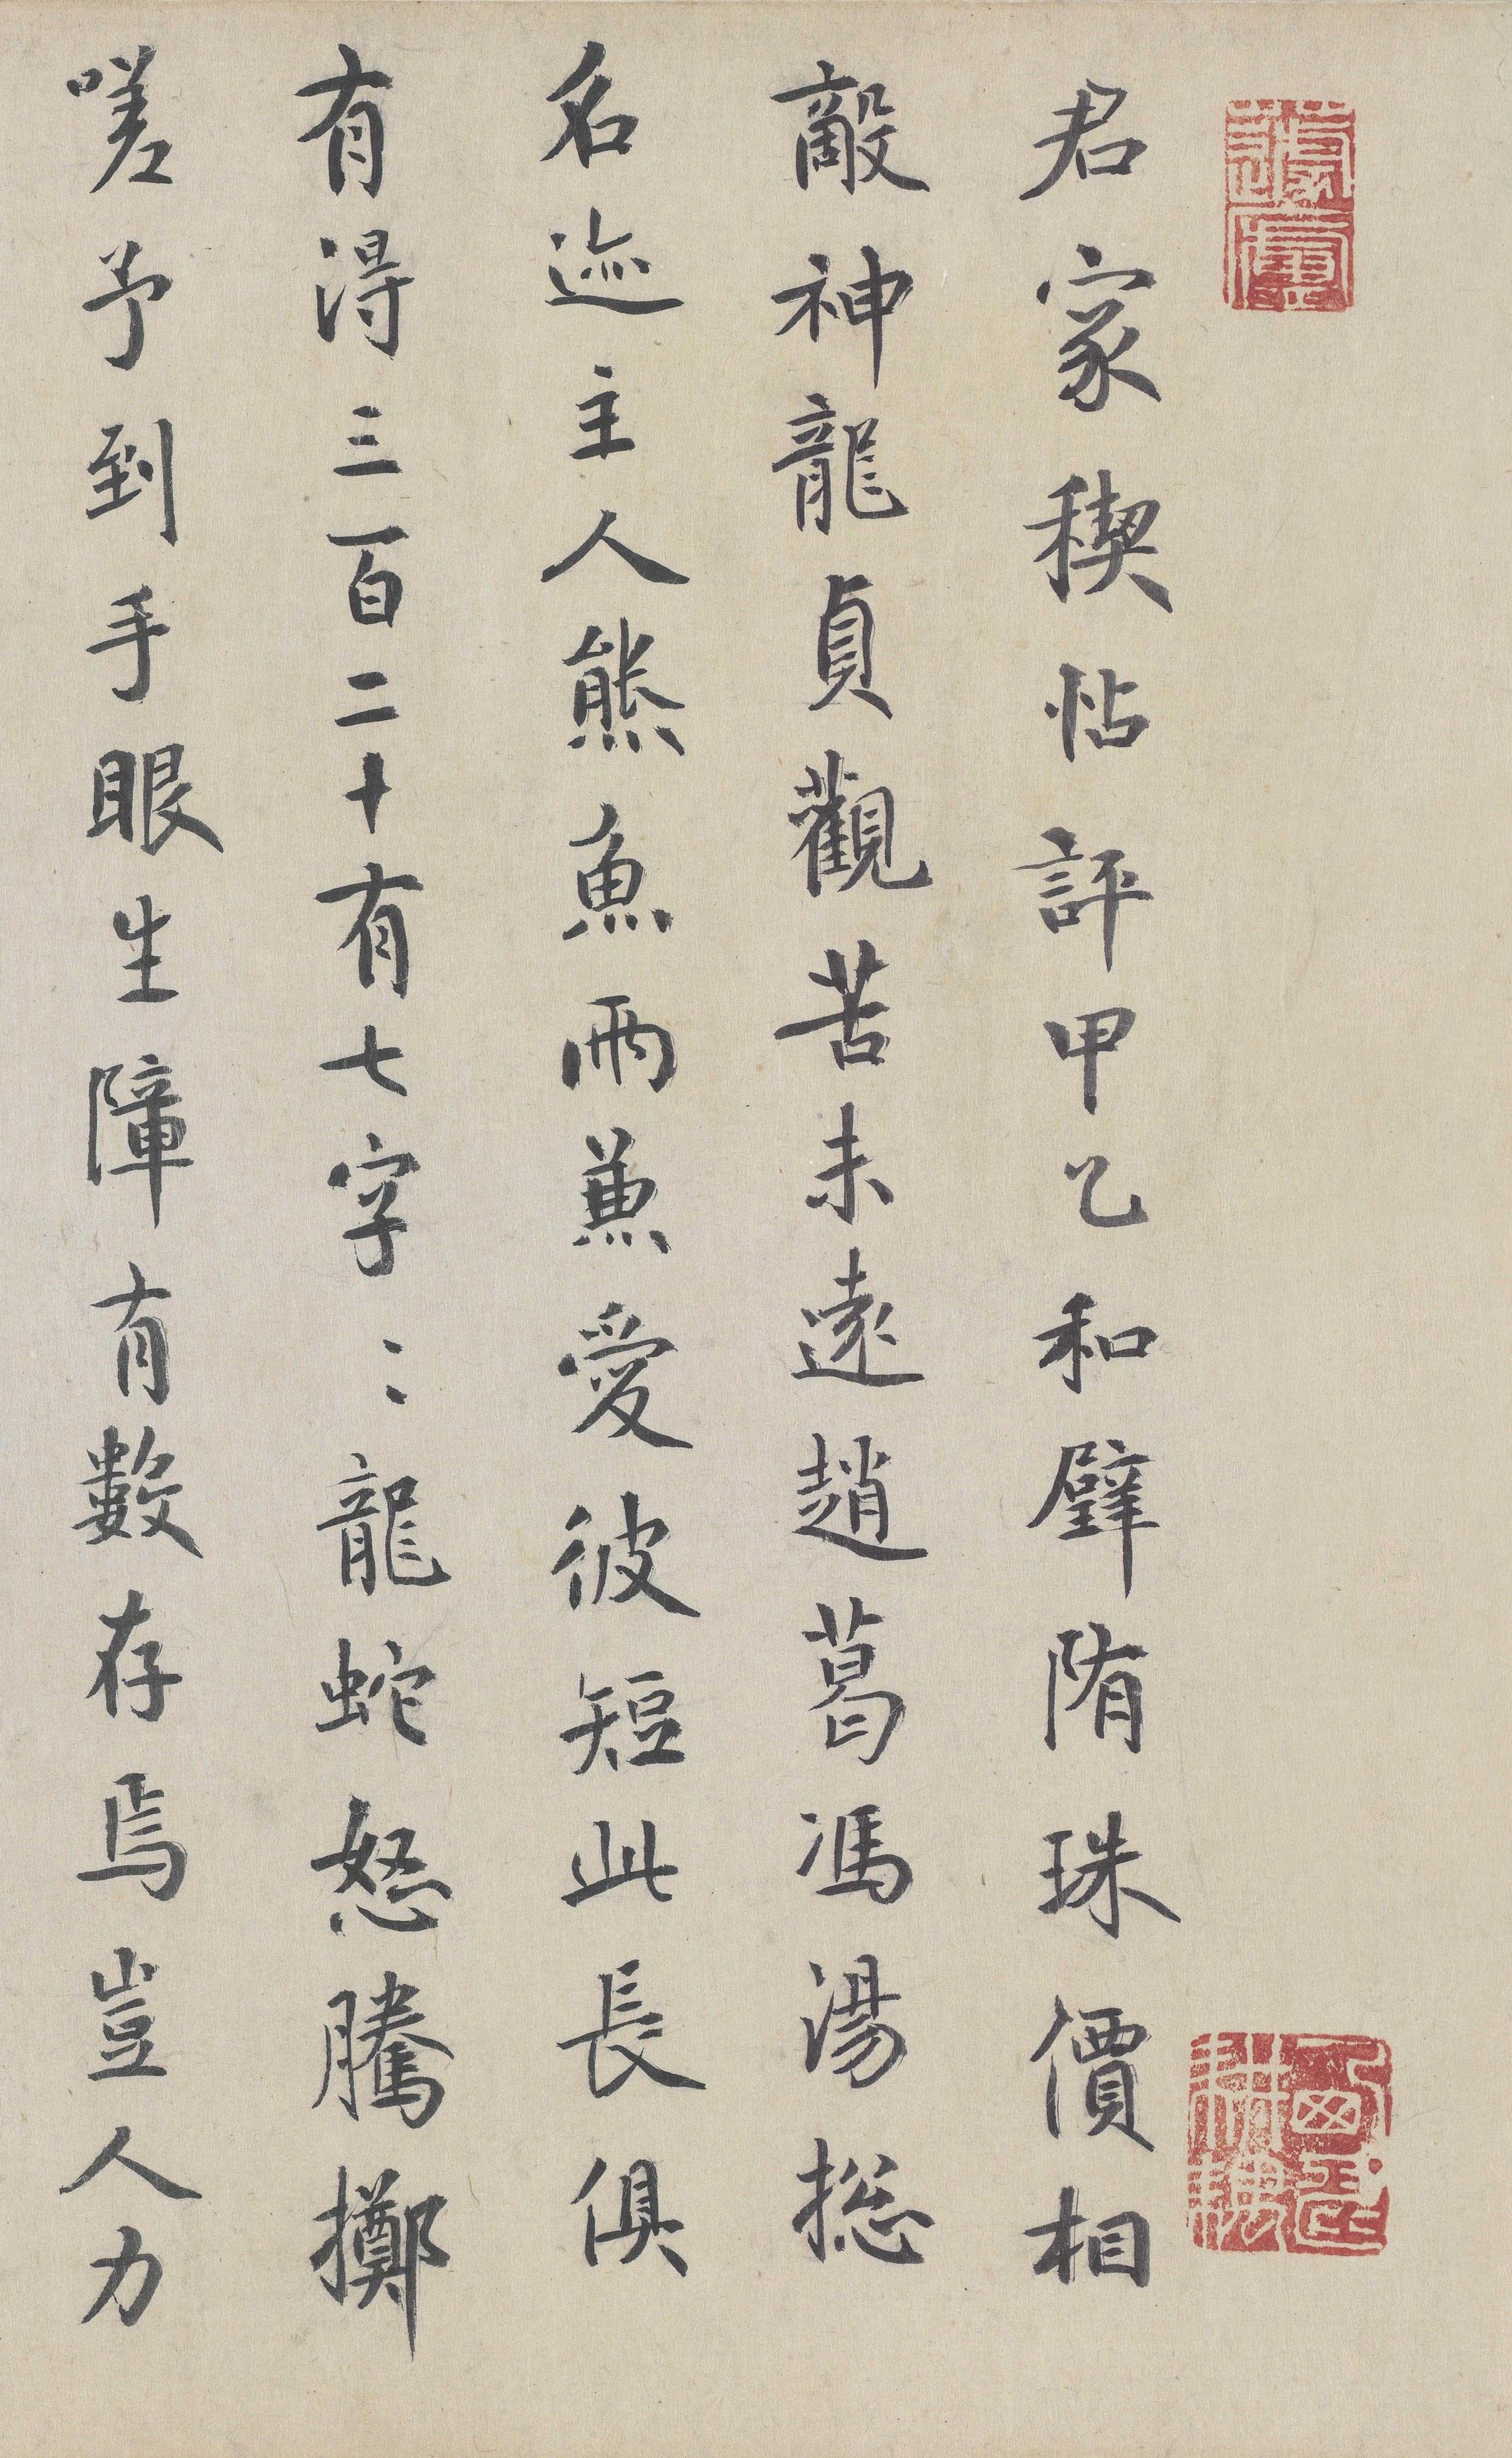 君家稧帖評甲乙和璧隋珠價相
敵神龍貞觀苦未遠趙葛馮湯捴
名迹主人熊魚兩兼愛彼短此長俱
有得三百二十有七字〻龍蛇怒騰擲
嗟予到手眼生障有數存焉豈人力